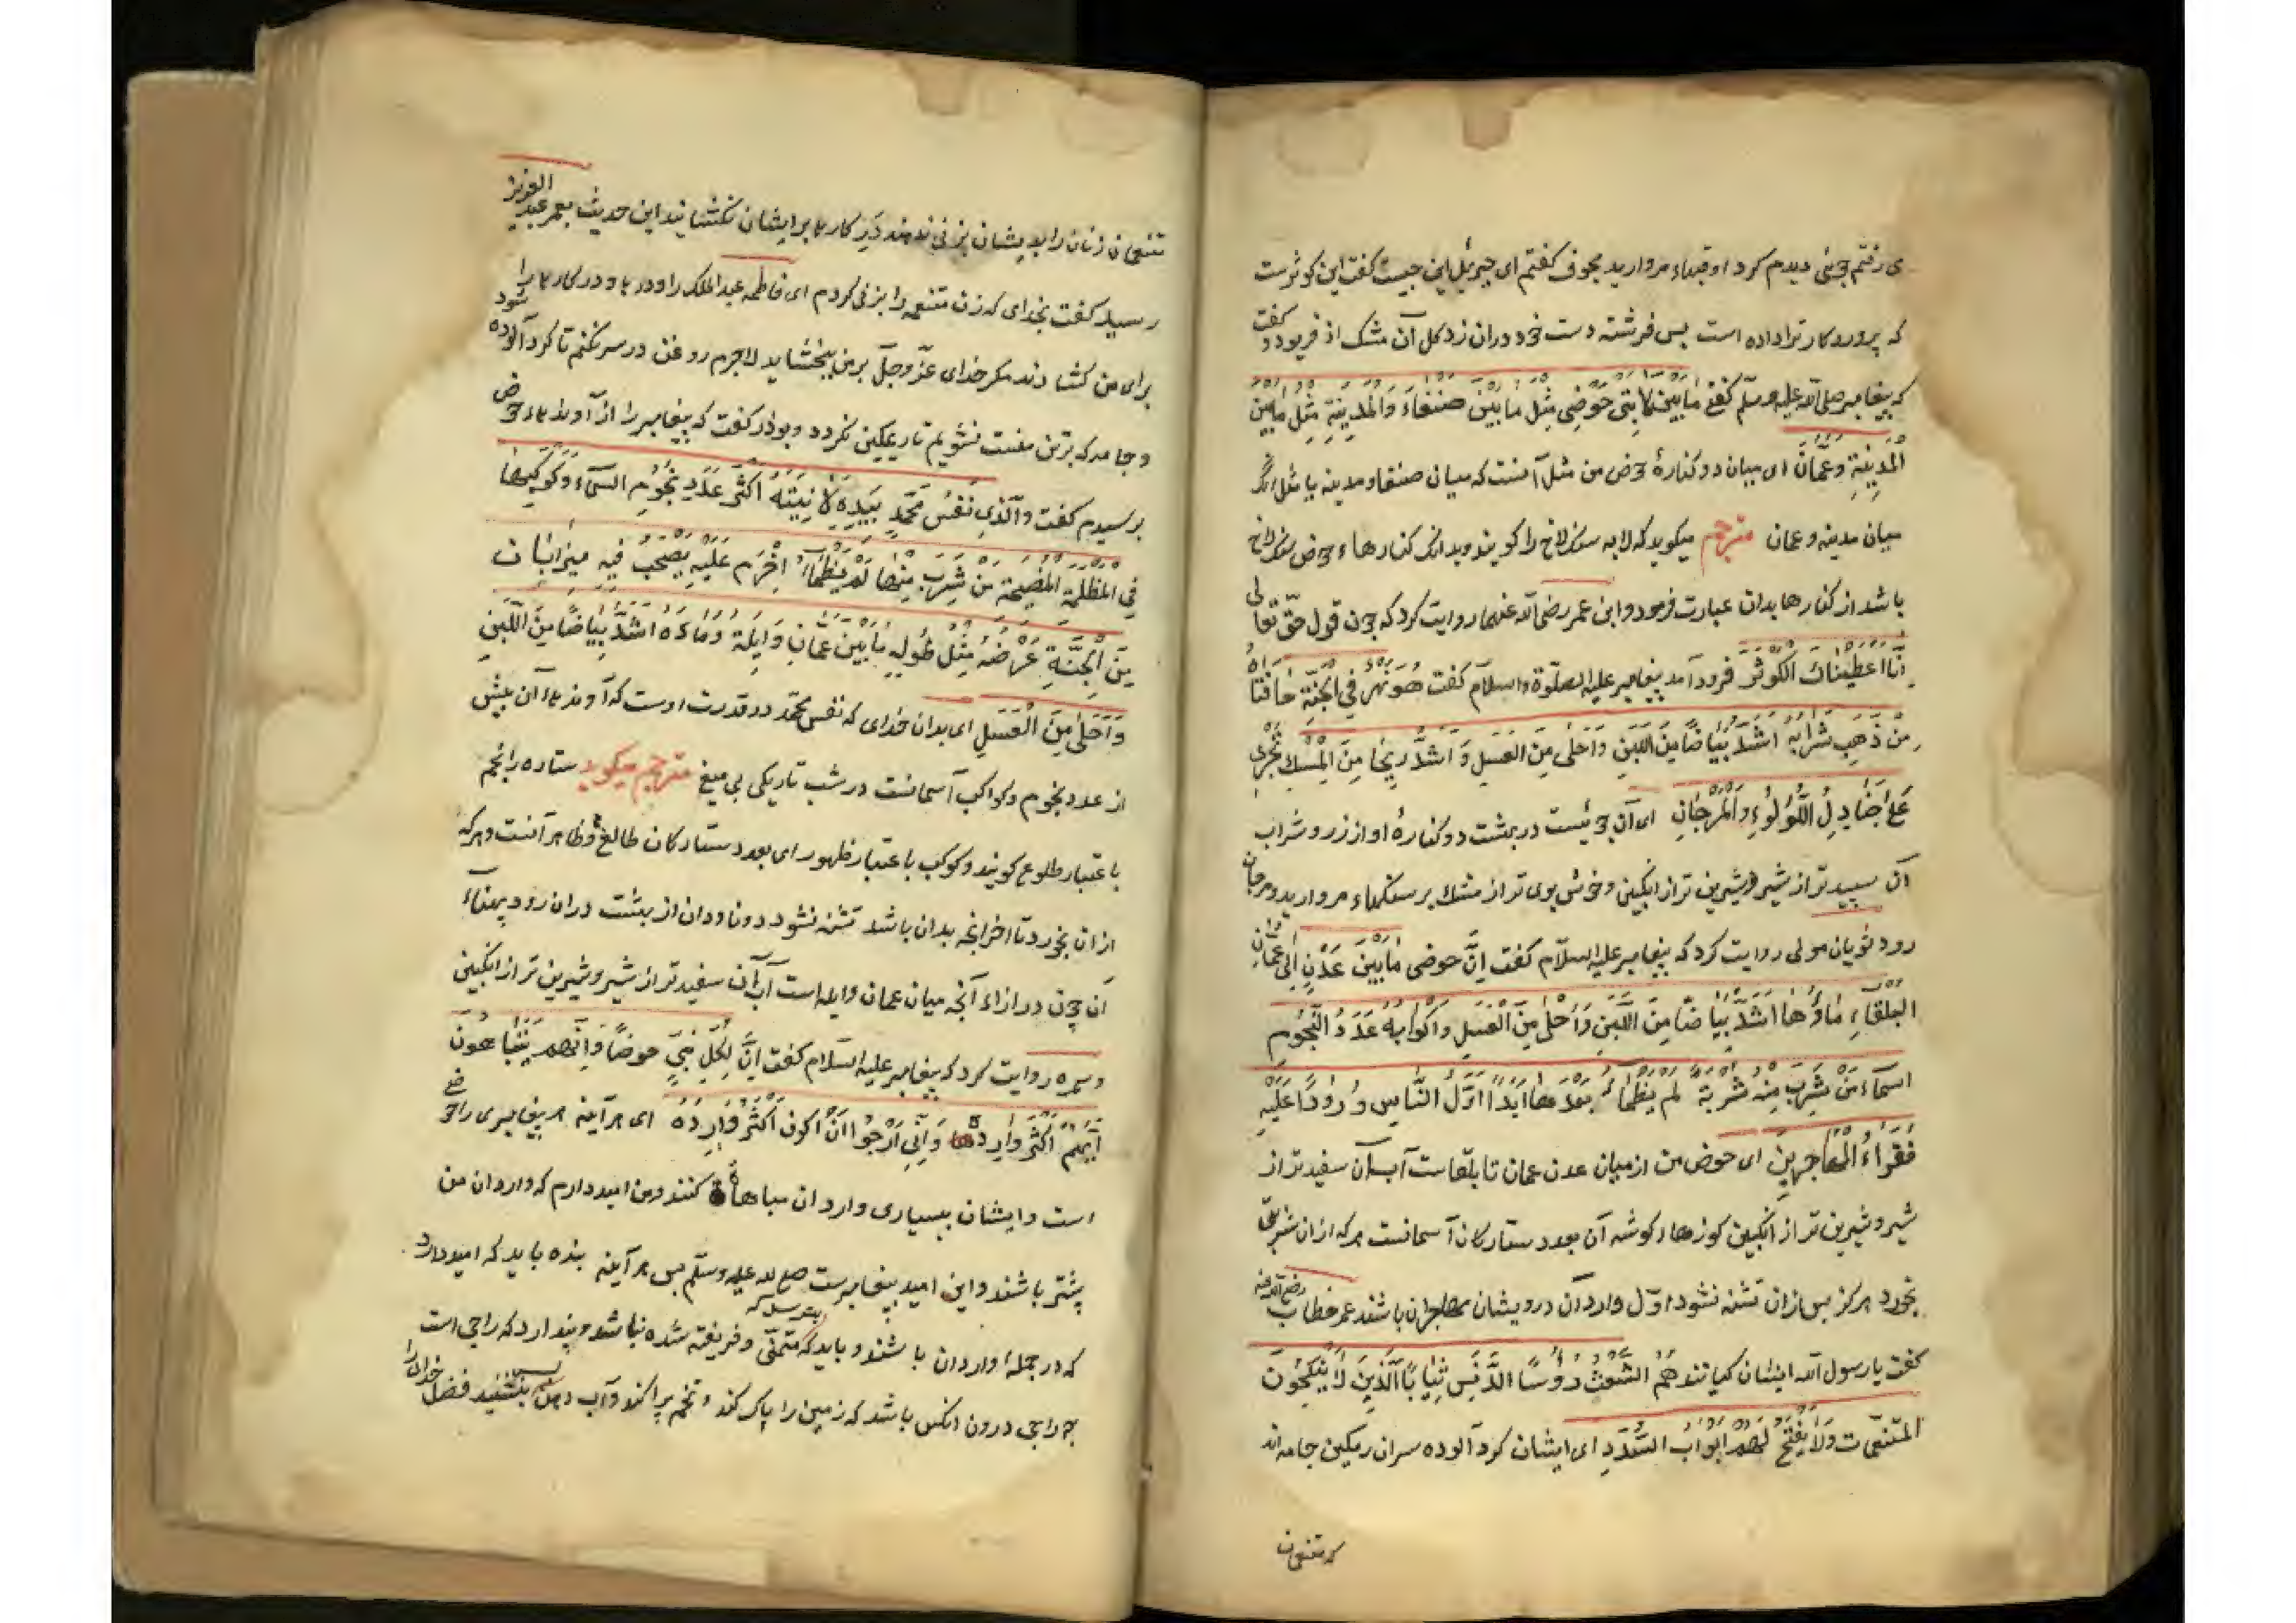 می رفتم جوئی دیدم کرد او قبهاء مروارید مجوف کفتم ای جبرئیل این چیست کفت این کوثرست
که پروردکار ترا داده است پس فرشته دست خود دران زد کل آن مشک اذفر بود و کفت
که پیغامبر صلی الله علیه وسلم کفت مَا بَیْنَ لَابَتَیْ حَوْضِی مِثْلُ مَا بَیْنَ صَنْعَاءَ وَالْمَدِینَةِ مِثْلُ مَا بَیْنَ
الْمَدِینَةِ وَعَمَّانَ ای میان دو کنارهٔ حوض من مثل آنست که میان صنعا و مدینه یا مثل آنک
میان مدینه و عمان مترجم میکوید که لابه سنک لاخ را کویند و بدانک کنارهاء حوض سنک لاخ
باشد از کنارها بدان عبارت فرمود و ابن عمر رضی الله عنهما روایت کرد که چون قول حق تعالی
اِنَّا اَعْطَیْنَاکَ الْکَوْثَرَ فرود آمد پیغامبر علیه الصلوة والسلام کفت هُوَ نَهْرٌ فِی الْجَنَّةِ حَافَتَاهُ
مِنْ ذَهَبٍ شَرَابُهُ اَشَدُّ بَیَاضًا مِنَ اللَّبَنِ وَاَحْلَی مِنَ الْعَسَلِ وَ اَشَدُّ رِیحًا مِنَ الْمِسْکِ تَجْرِی
عَلَی جَنَادِلِ اللُّؤْلُؤِ وَالْمَرْجَانِ ای آن جوئیست در بهشت دو کنارهٔ او از زر و شراب
آن سپیدتر از شیر و شیرین تر از انکبین و خوش بوی تر از مشک بر سنکهاء مروارید و مرجان
رود ثوبان مولی روایت کرد که پیغامبر علیه السلام کفت اِنَّ حوضی مَا بَیْنَ عَدْنٍ اِلَی عَمَّانِ
الْبَلْقَاءِ مَاؤُهَا اَشَدُّ بَیَاضًا مِنَ اللَّبَنِ وَاَحْلَی مِنَ الْعَسَلِ وَاَکْوَابُهُ عَدَدُ النُّجُومِ
السمآء مَنْ شَرِبَ مِنْهُ شَرْبَةً لَمْ یَظْمَأْ بَعْدَهَا اَبَدًا اَوَّلُ النَّاسِ وُرُودًا عَلَیْهِ
فُقَرَاءُ الْمُهَاجِرِینَ ای حوض من از میان عدن عمان تا بلقاست آب آن سفیدتر از
شیر و شیرین تر از انکبین کوزها و کوشه آن بعدد ستارکان آسمانست هرکه ازان شربتی
بخورد هرکز پس ازان تشنه نشود اول واردان درویشان مهاجران باشند عمر خطاب رضی الله عنه
کفت یا رسول الله ایشان کیانند هُمُ الشُّعْثُ رُؤُسًا الدُّنُسُ ثِیَابًا الَّذِینَ لَا یَنْکِحُونَ
الْمُتَنَعِّمَاتِ وَلَا یُفْتَحُ لَهُمْ اَبْوَابُ السُّدَدِ ای ایشان کرد آلوده سران ریمکین جامه اند
که متنعمان
متنعمان زنان را بدیشان بزنی ندهند و در کارها بر ایشان نکشایند این حدیث بعمر عبد العزیز
رسید کفت بخدای که زن متنعمه را بزنی کردم ای فاطمه عبد الملک را و درها و در کارها را
برای من کشادند مکر خدای عز وجل بر من ببخشاید لاجرم روغن در سر نکنم تا کرد آلوده شود
و جامه که بر تن منست نشویم تا ریمکین نکردد و بوذر کفت که پیغامبر را از آوندهاء حوض
پرسیدم کفت وَالَّذِی نَفْسُ مُحَمَّدٍ بِیَدِهِ لَآنِیَتُهُ اَکْثَرُ عَدَدِ نُجُومِ السمآء وَکَوَاکِبِهَا
فِی الْمُظْلِمَةِ الْمُصْحِیَةِ مَنْ شَرِبَ مِنْهَا لَمْ یَظْمَأْ اٰخِرَ مَا عَلَیْهِ یَصُبُّ فِیهِ مِیزَابَانِ
مِنَ الْجَنَّةِ عَرْضُهُ مِثْلُ طُولِهِ مَا بَیْنَ عَمَّانَ وَاَیْلَةَ وَمَاؤُهُ اَشَدُّ بَیَاضًا مِنَ اللَّبَنِ
وَاَحْلَی مِنَ الْعَسَلِ ای بدان خدای که نفس محمد در قدرت اوست که آوندهاء آن بیش
از عدد نجوم و کواکب آسمانست در شب تاریکی بی میغ مترجم میکوید ستاره را نجم
باعتبار طلوع کویند و کوکب باعتبار ظهور ای بعدد ستارکان طالع و ظاهر آنست و هرکه
ازان بخورد تا اخر آنچه بدان باشد تشنه نشود دو ناودان از بهشت دران رود پهناء
آن چون درازاء آنچه میان عمان و ایله است آب آن سفیدتر از شیر و شیرین تر از انکبین
و سمره روایت کرد که پیغامبر علیه السلام کفت اِنَّ لِکُلِّ نَبِیٍّ حوضًا وَاِنَّهُمْ یَتَبَاهُونَ
اَیُّهُمْ اَکْثَرُ وَارِدَةً وَاِنِّی اَرْجُوا اَنْ اَکُونَ اَکْثَرَ وَارِدَةً ای هرآینه هر پیغامبری را حوضی
است و ایشان ببسیاری واردان مباهاة کنند و من امید دارم که واردان من
بیشتر باشند و این امید پیغامبرست صلی الله علیه وسلم پس هرآینه بنده باید که امید دارد
که در جملهٔ واردان باشند و باید که متمنی و فریفته شده نباشد و پندارد که راجی است
چه راجی درون انکس باشد که زمین را پاک کند و تخم پراکند و آب دهد بنشیند فضل خدای را